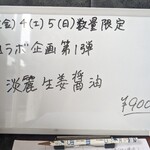 (金)4(土)5(日)数量限定
コラボ企画第1弾
淡麗生姜醤油
¥900